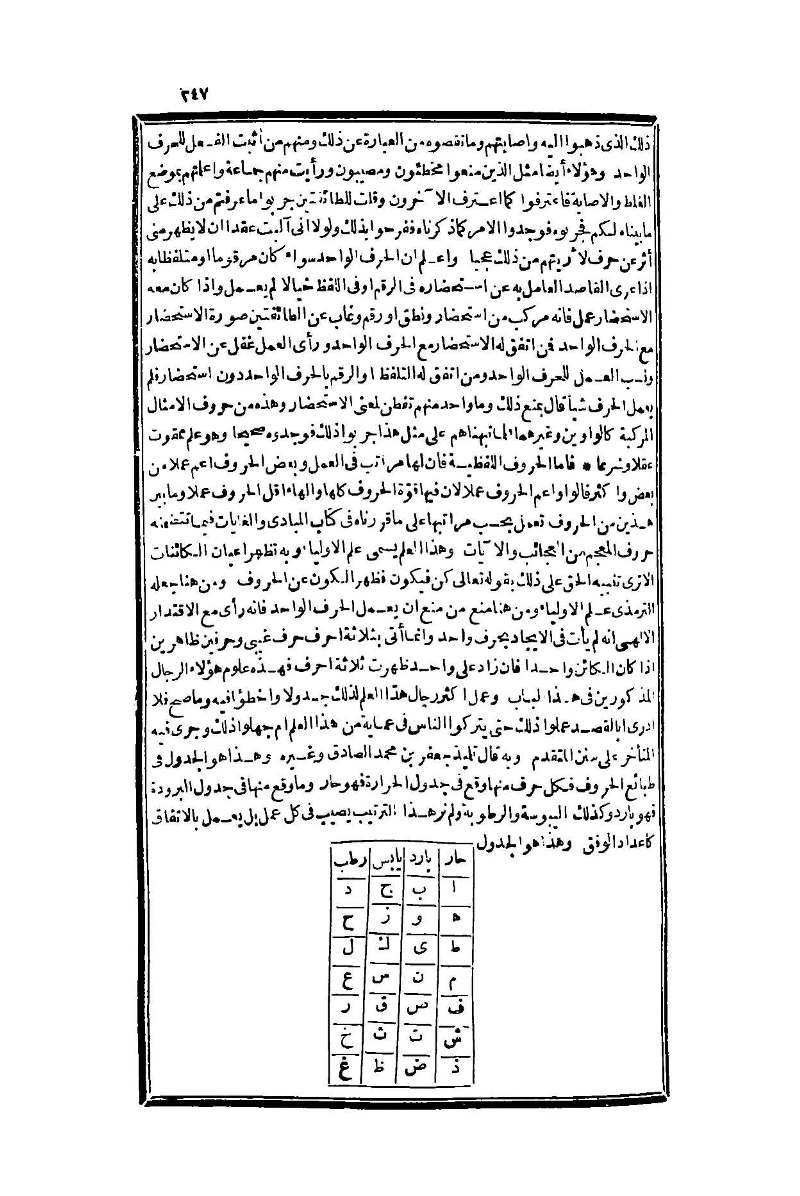 ٢٤٧
ذلك الذى ذهبوا اليه واصابتهم وما نقصوه من العبارة عن ذلك ومنهم من أثبت الفعل للحرف
الواحد وهؤلاء أيضا مثل الذين منعوا مخطئون ومصيبون ورأيت منهم جماعة واعلمتهم بموضع
الغلط والاصابة فاعترفوا كما اعترف الآخرون وقلت للطائفتين جربوا ما عرفتم من ذلك على
ما بيناه لكم فجربوه فوجدوا الامر كما ذكرناه ففرحوا بذلك ولولا انى آليت عقدا ان لا يظهر منى
أثر عن حرف لأريتهم من ذلك عجبا واعلم ان الحرف الواحد سواء كان مرقوما او متلفظا به
اذا عرى القاصد العامل به عن استحضاره فى الرقم او فى اللفظ خيالا لم يعمل واذا كان معه
الاستحضار عمل فانه مركب من استحضار ونطق او رقم وغاب عن الطائفتين صورة الاستحضار
مع الحرف الواحد فن اتفق له الاستحضار مع الحرف الواحد ورأى العمل غفل عن الاستحضار
ونسب العمل للحرف الواحد ومن اتفق له التلفظ او الرقم بالحرف الواحد دون استحضار فلم
يعمل الحرف شيأ قال بمنع ذلك وما واحد منهم تفطن لمعنى الاستحضار وهذه من حروف الامثال
المركبة كالواوين وغيرهما فلما نبهناهم على مثل هذا جربوا ذلك فوجدوه صحيحا وهو علم ممقوت
عقلا وشرعا * فاما الحروف اللفظية فان لها مراتب فى العمل وبعض الحروف اعم عملا من
بعض واكثر فالواو اعم الحروف عملا لان فيها قوة الحروف كلها والهاء اقل الحروف عملا وما بين
هذين من الحروف تعمل بحسب مراتبها على ما قررناه فى كتاب المبادى والغايات فيما تتضمنه
حروف المعجم من العجائب والآيات وهذا العلم يسمى علم الاولياء وبه تظهر اعيان الكائنات
الاترى تنبيه الحق على ذلك بقوله تعالى كن فيكون فظهر الكون عن الحروف ومن هنا جعله
الترمذى علم الاولياء ومن هنا منع من منع ان يعمل الحرف الواحد فانه رأى مع الاقتدار
الالهى انه لم يأت فى الايجاد بحرف واحد وانما أتى بثلاثة احرف حرف غيبى وحرفين ظاهرين
اذا كان الكائن واحدا فان زاد على واحد ظهرت ثلاثة احرف فهذه علوم هؤلاء الرجال
المذكورين فى هذا الباب وعمل اكثر رجال هذا العلم لذلك جدولا واخطؤا فيه وما صح فلا
ادرى أبالقصد عملوا ذلك حتى يتركوا الناس فى عماية من هذا العلم ام جهلوا ذلك وجرى فيه
المتأخر على سنن المتقدم وبه قال تلميذ جعفر بن محمد الصادق وغيره وهذا هو الجدول فى
طبائع الحروف فكل حرف منها وقع فى جدول الحرارة فهو حار وما وقع منها فى جدول البرودة
فهو بارد وكذلك اليبوسة والرطوبة ولم نر هذا الترتيب يصيب فى كل عمل بل يعمل بالاتفاق
كاعداد الوفق وهذا هو الجدول
حار بارد يابس رطب
ا ب ج د
ه و ز ح
ط ى ك ل
م ن س ع
ف ص ق ر
ش ت ث خ
ذ ض ظ غ